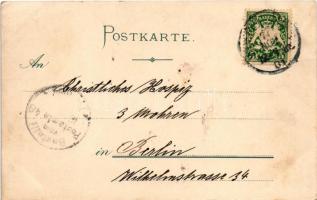 POSTKARTE.
An
Christliches Hospiz
3 Mohren
in Berlin
Wilhelmstrasse 34